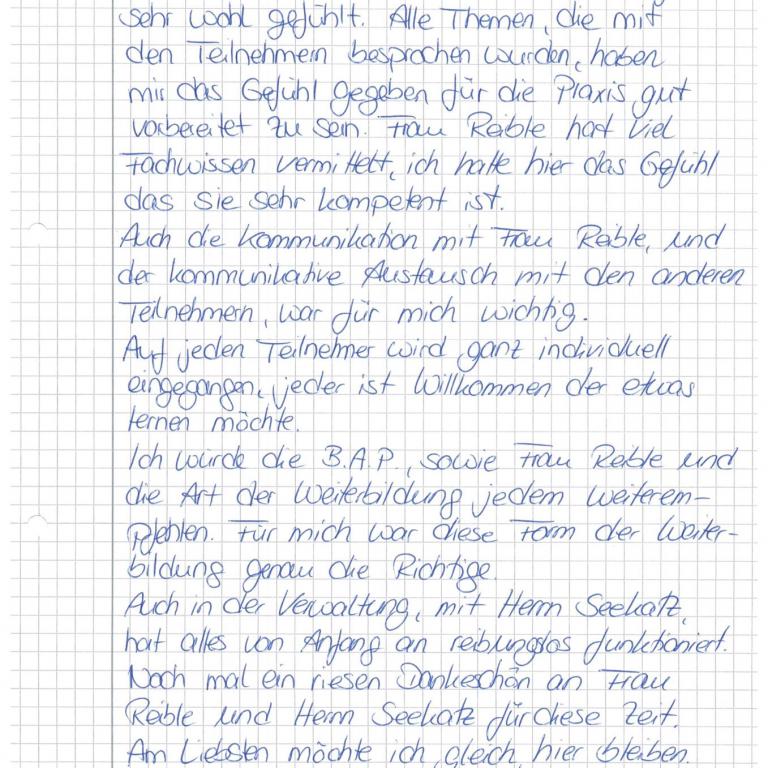 sehr wohl gefühlt. Alle Themen, die mit
den Teilnehmern besprochen wurden, haben
mir das Gefühl gegeben für die Praxis gut
vorbereitet zu sein. Frau Reible hat viel
Fachwissen vermittelt, ich hatte hier das Gefühl
das sie sehr kompetent ist.
Auch die Kommunikation mit Frau Reible, und
der kommunikative Austausch mit den anderen
Teilnehmern, war für mich wichtig.
Auf jeden Teilnehmer wird ganz individuell
eingegangen, jeder ist Willkommen der etwas
lernen möchte.
Ich würde die B.A.P., sowie Frau Reible und
die Art der Weiterbildung jedem weiterem-
pfehlen. Für mich war diese Form der Weiter-
bildung genau die Richtige.
Auch in der Verwaltung, mit Herrn Seekatz,
hat alles von Anfang an reibungslos funktioniert.
Noch mal ein riesen Dankeschön an Frau
Reible und Herrn Seekatz für diese Zeit.
Am Liebsten möchte ich gleich hier bleiben.